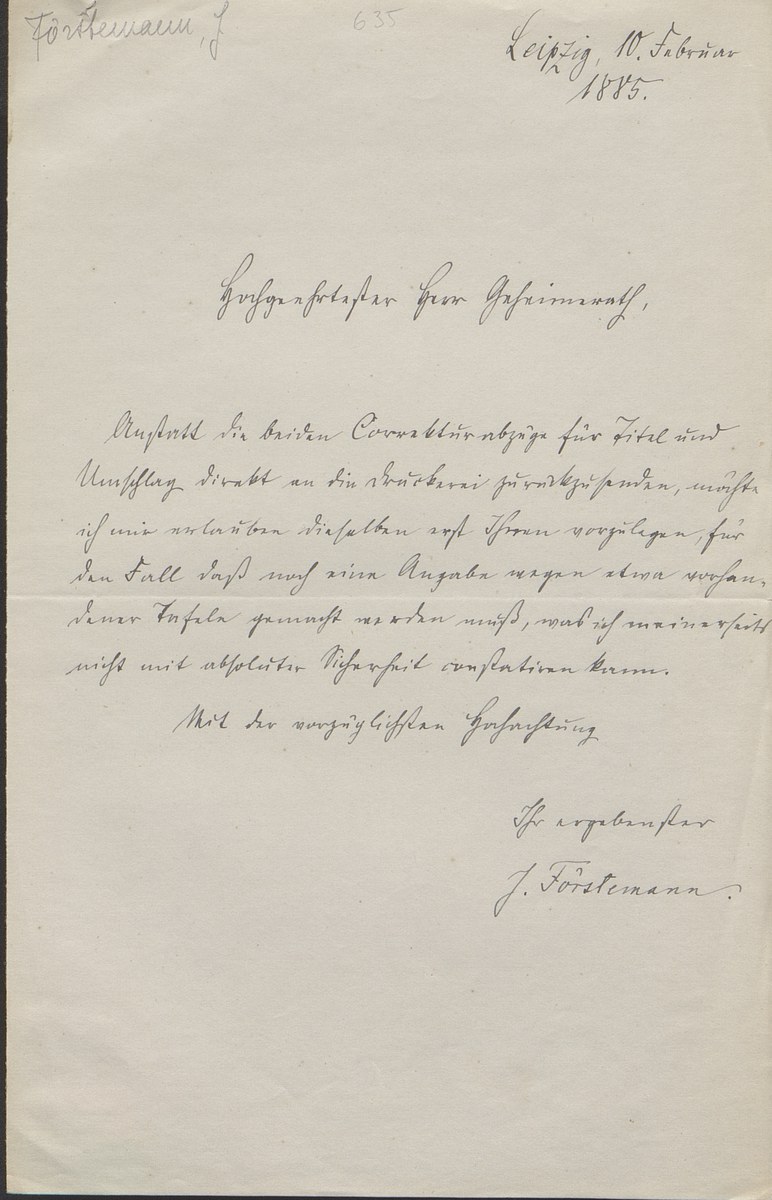 Förstemann, J
635
Leipzig, 10. Februar
1885.
Hochgeehrtester Herr Geheimerath,
Anstatt die beiden Correkturabzüge für Titel und
Umschlag direkt an die Druckerei zurückzusenden, möchte
ich mir erlauben dieselben erst Ihnen vorzulegen, für
den Fall daß noch eine Angabe wegen etwa vorhan-
dener Tafeln gemacht werden muß, was ich meinerseits
nicht mit absoluter Sicherheit constatiren kann.
Mit der vorzüglichsten Hochachtung
Ihr ergebenster
J. Förstemann.